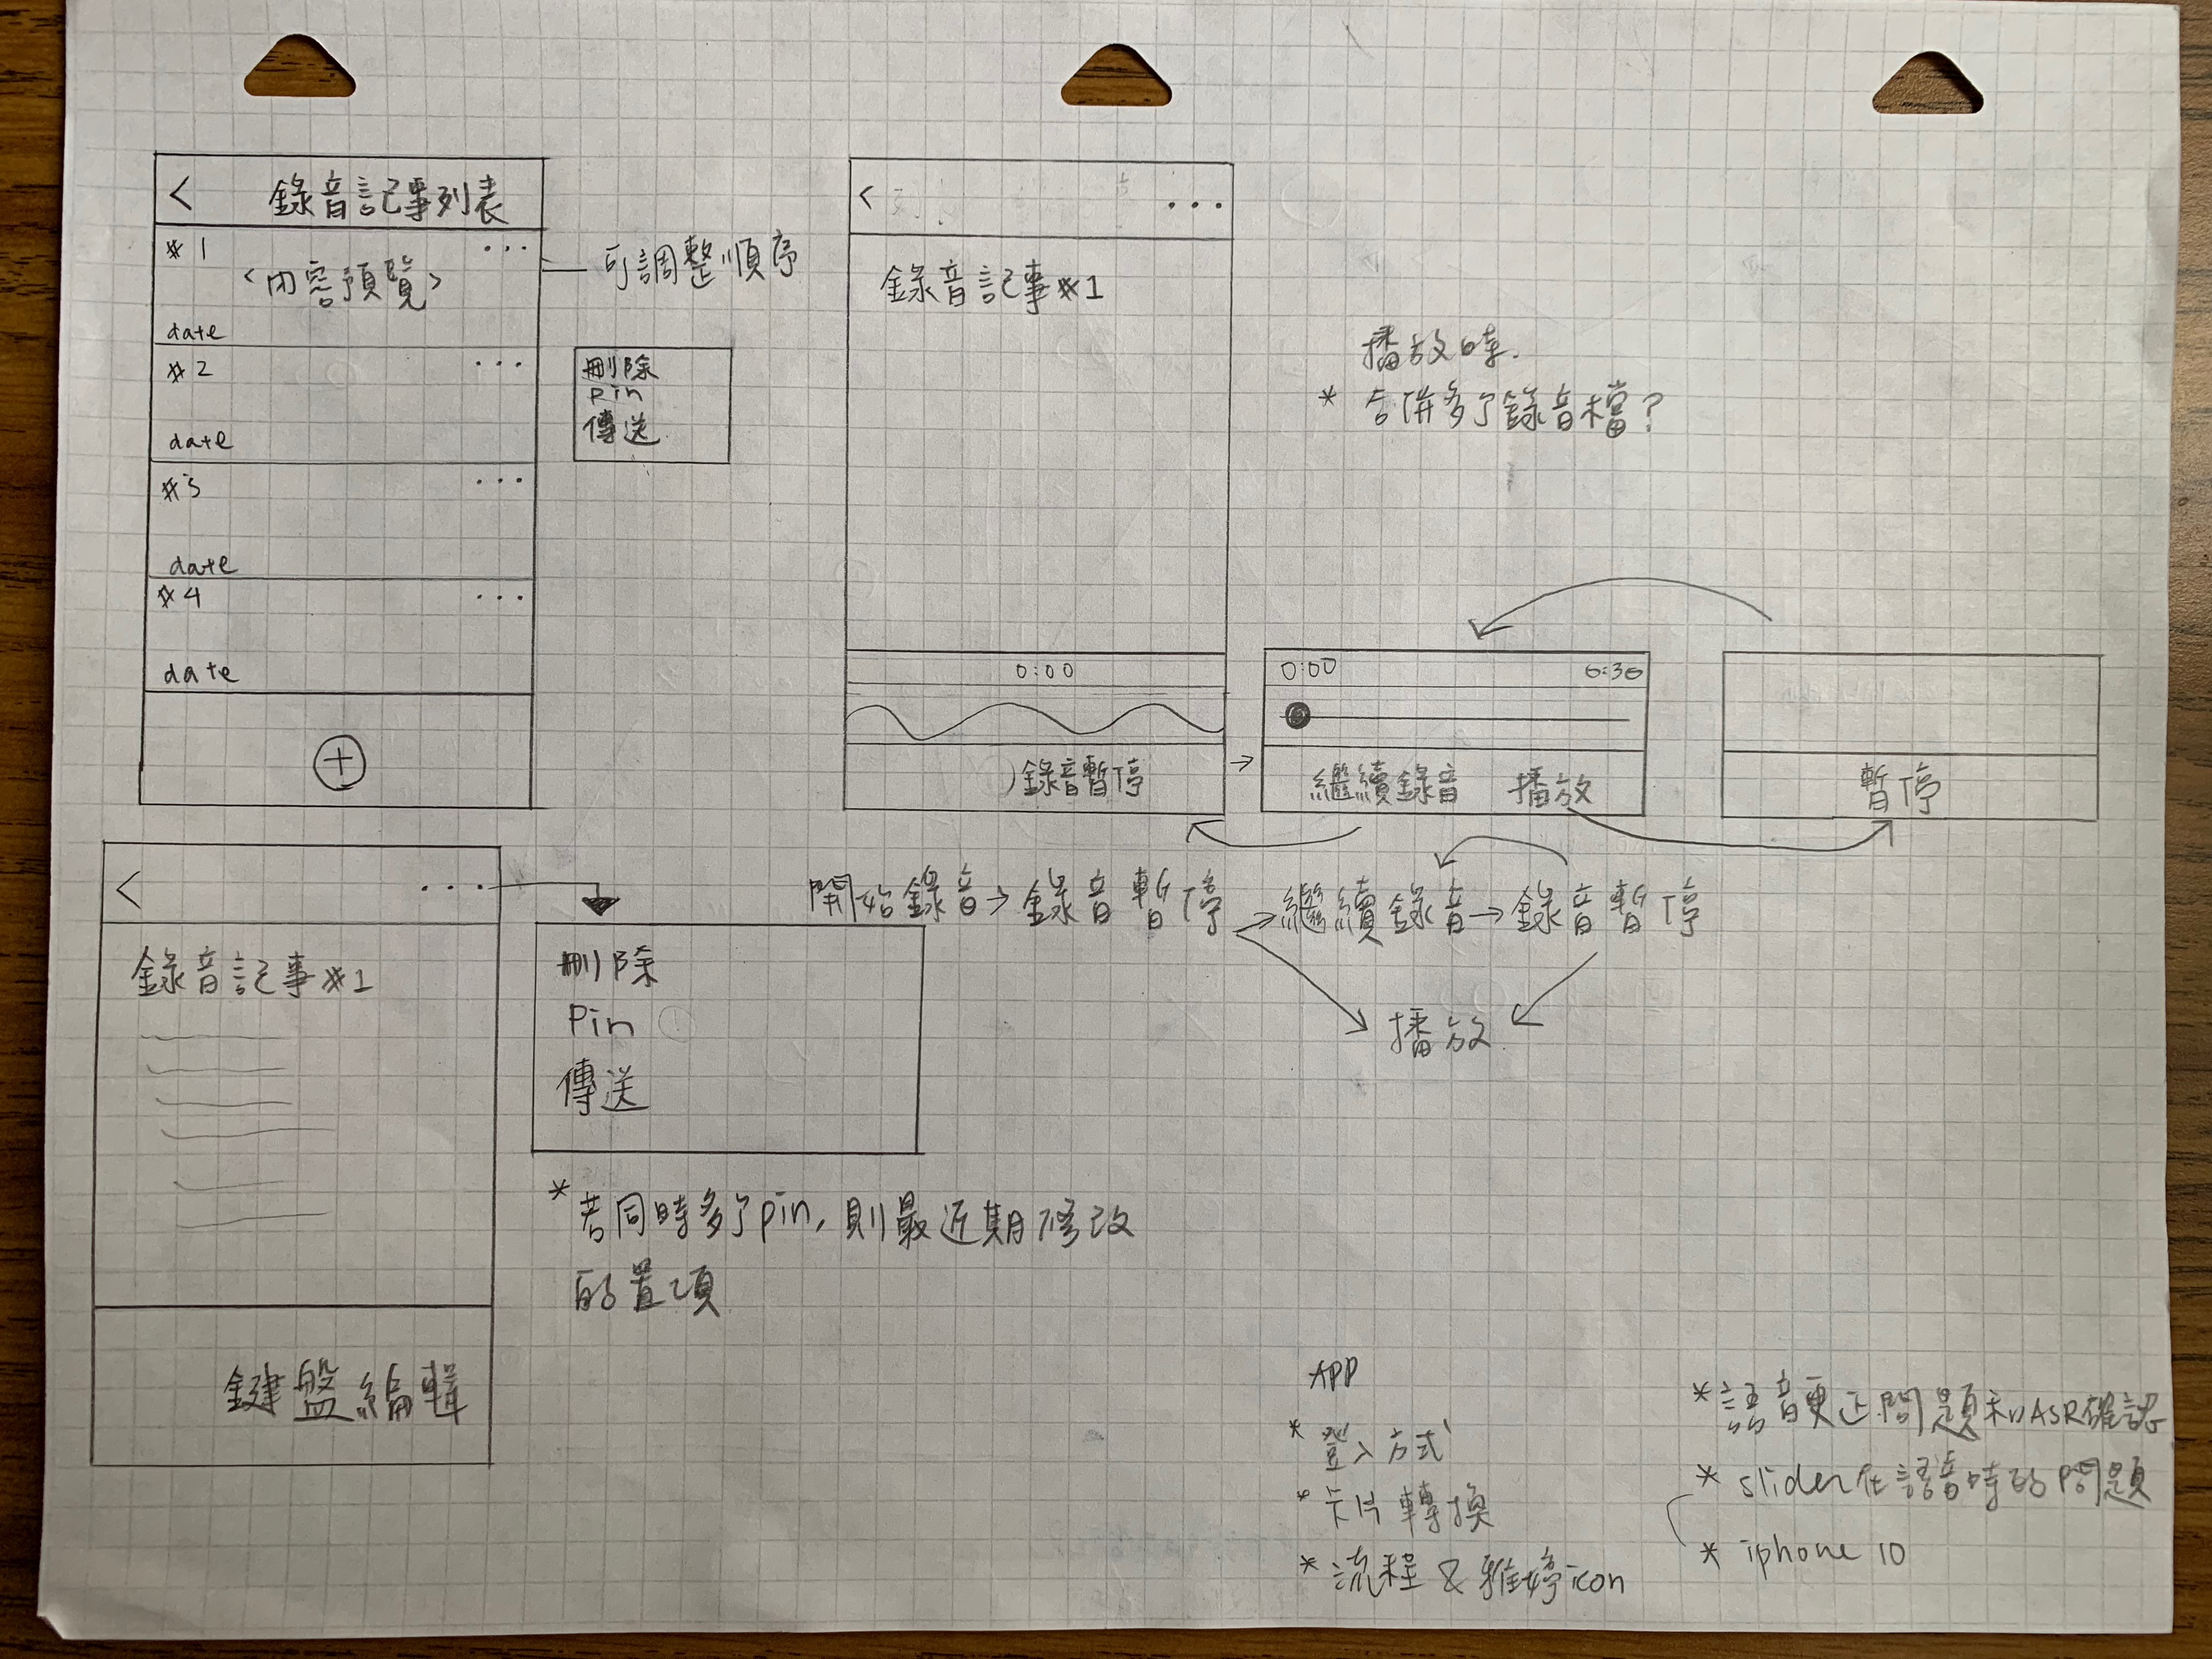 < 錄音記事列表
#1 ...
<內容預覽>
date
#2 ...
date
#3 ...
date
#4 ...
date
+
可調整順序
刪除
pin
傳送
< ...
錄音記事#1
0:00
錄音暫停
播放時.
* 合併多了錄音檔?
0:00 6:36
繼續錄音 播放
暫停
開始錄音→錄音暫停→繼續錄音→錄音暫停
播放
< ...
錄音記事#1
鍵盤編輯
刪除
Pin
傳送
*若同時多了pin,則最近期修改
的置頂
APP
*登入方式
*卡片轉換
*流程&雅婷icon
*語音更正問題和ASR確認
*slider在語音時的問題
*iphone 10